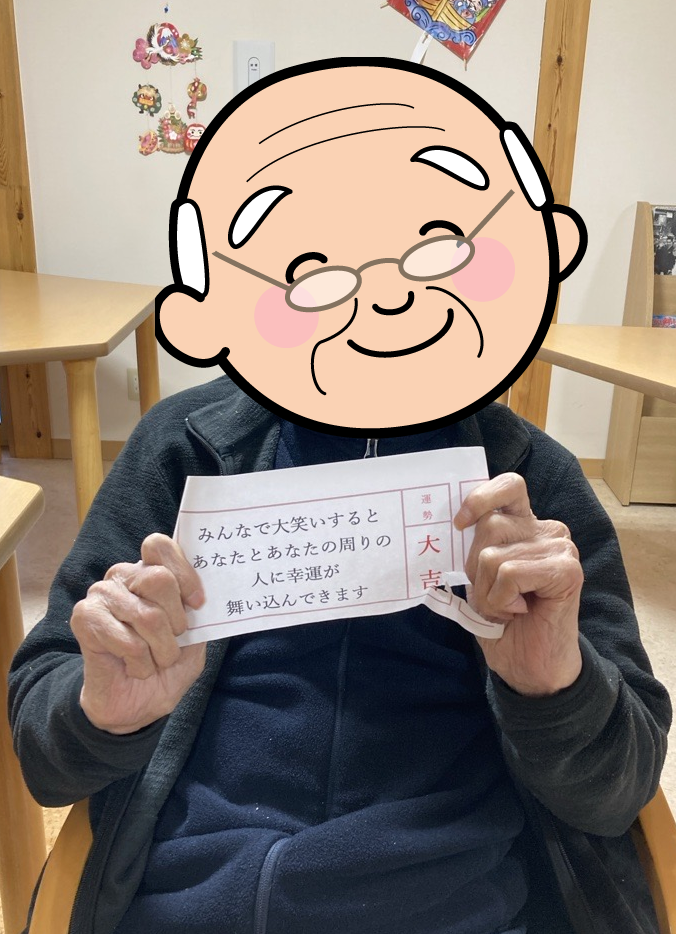 運勢
大吉
みんなで大笑いすると
あなたとあなたの周りの
人に幸運が
舞い込んできます